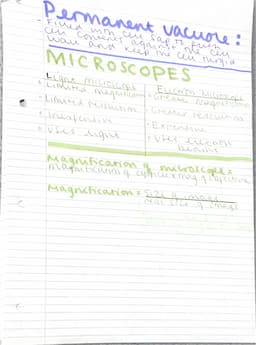 Permanent vacuole:
- Filled with cell sap to push
cell content against the cell
wall and keep the cell turgid
MICROSCOPES
Light microscope
Electron microscope
• Limited magnification
• Greater magnification
• Limited resolution
• Greater resolution
• Inexpensive
• Expensive
• Uses light
• Uses electron
beams
Magnification of microscope =
magnification of eyepiece x mag of objective
Magnification = Size of image
real size of image